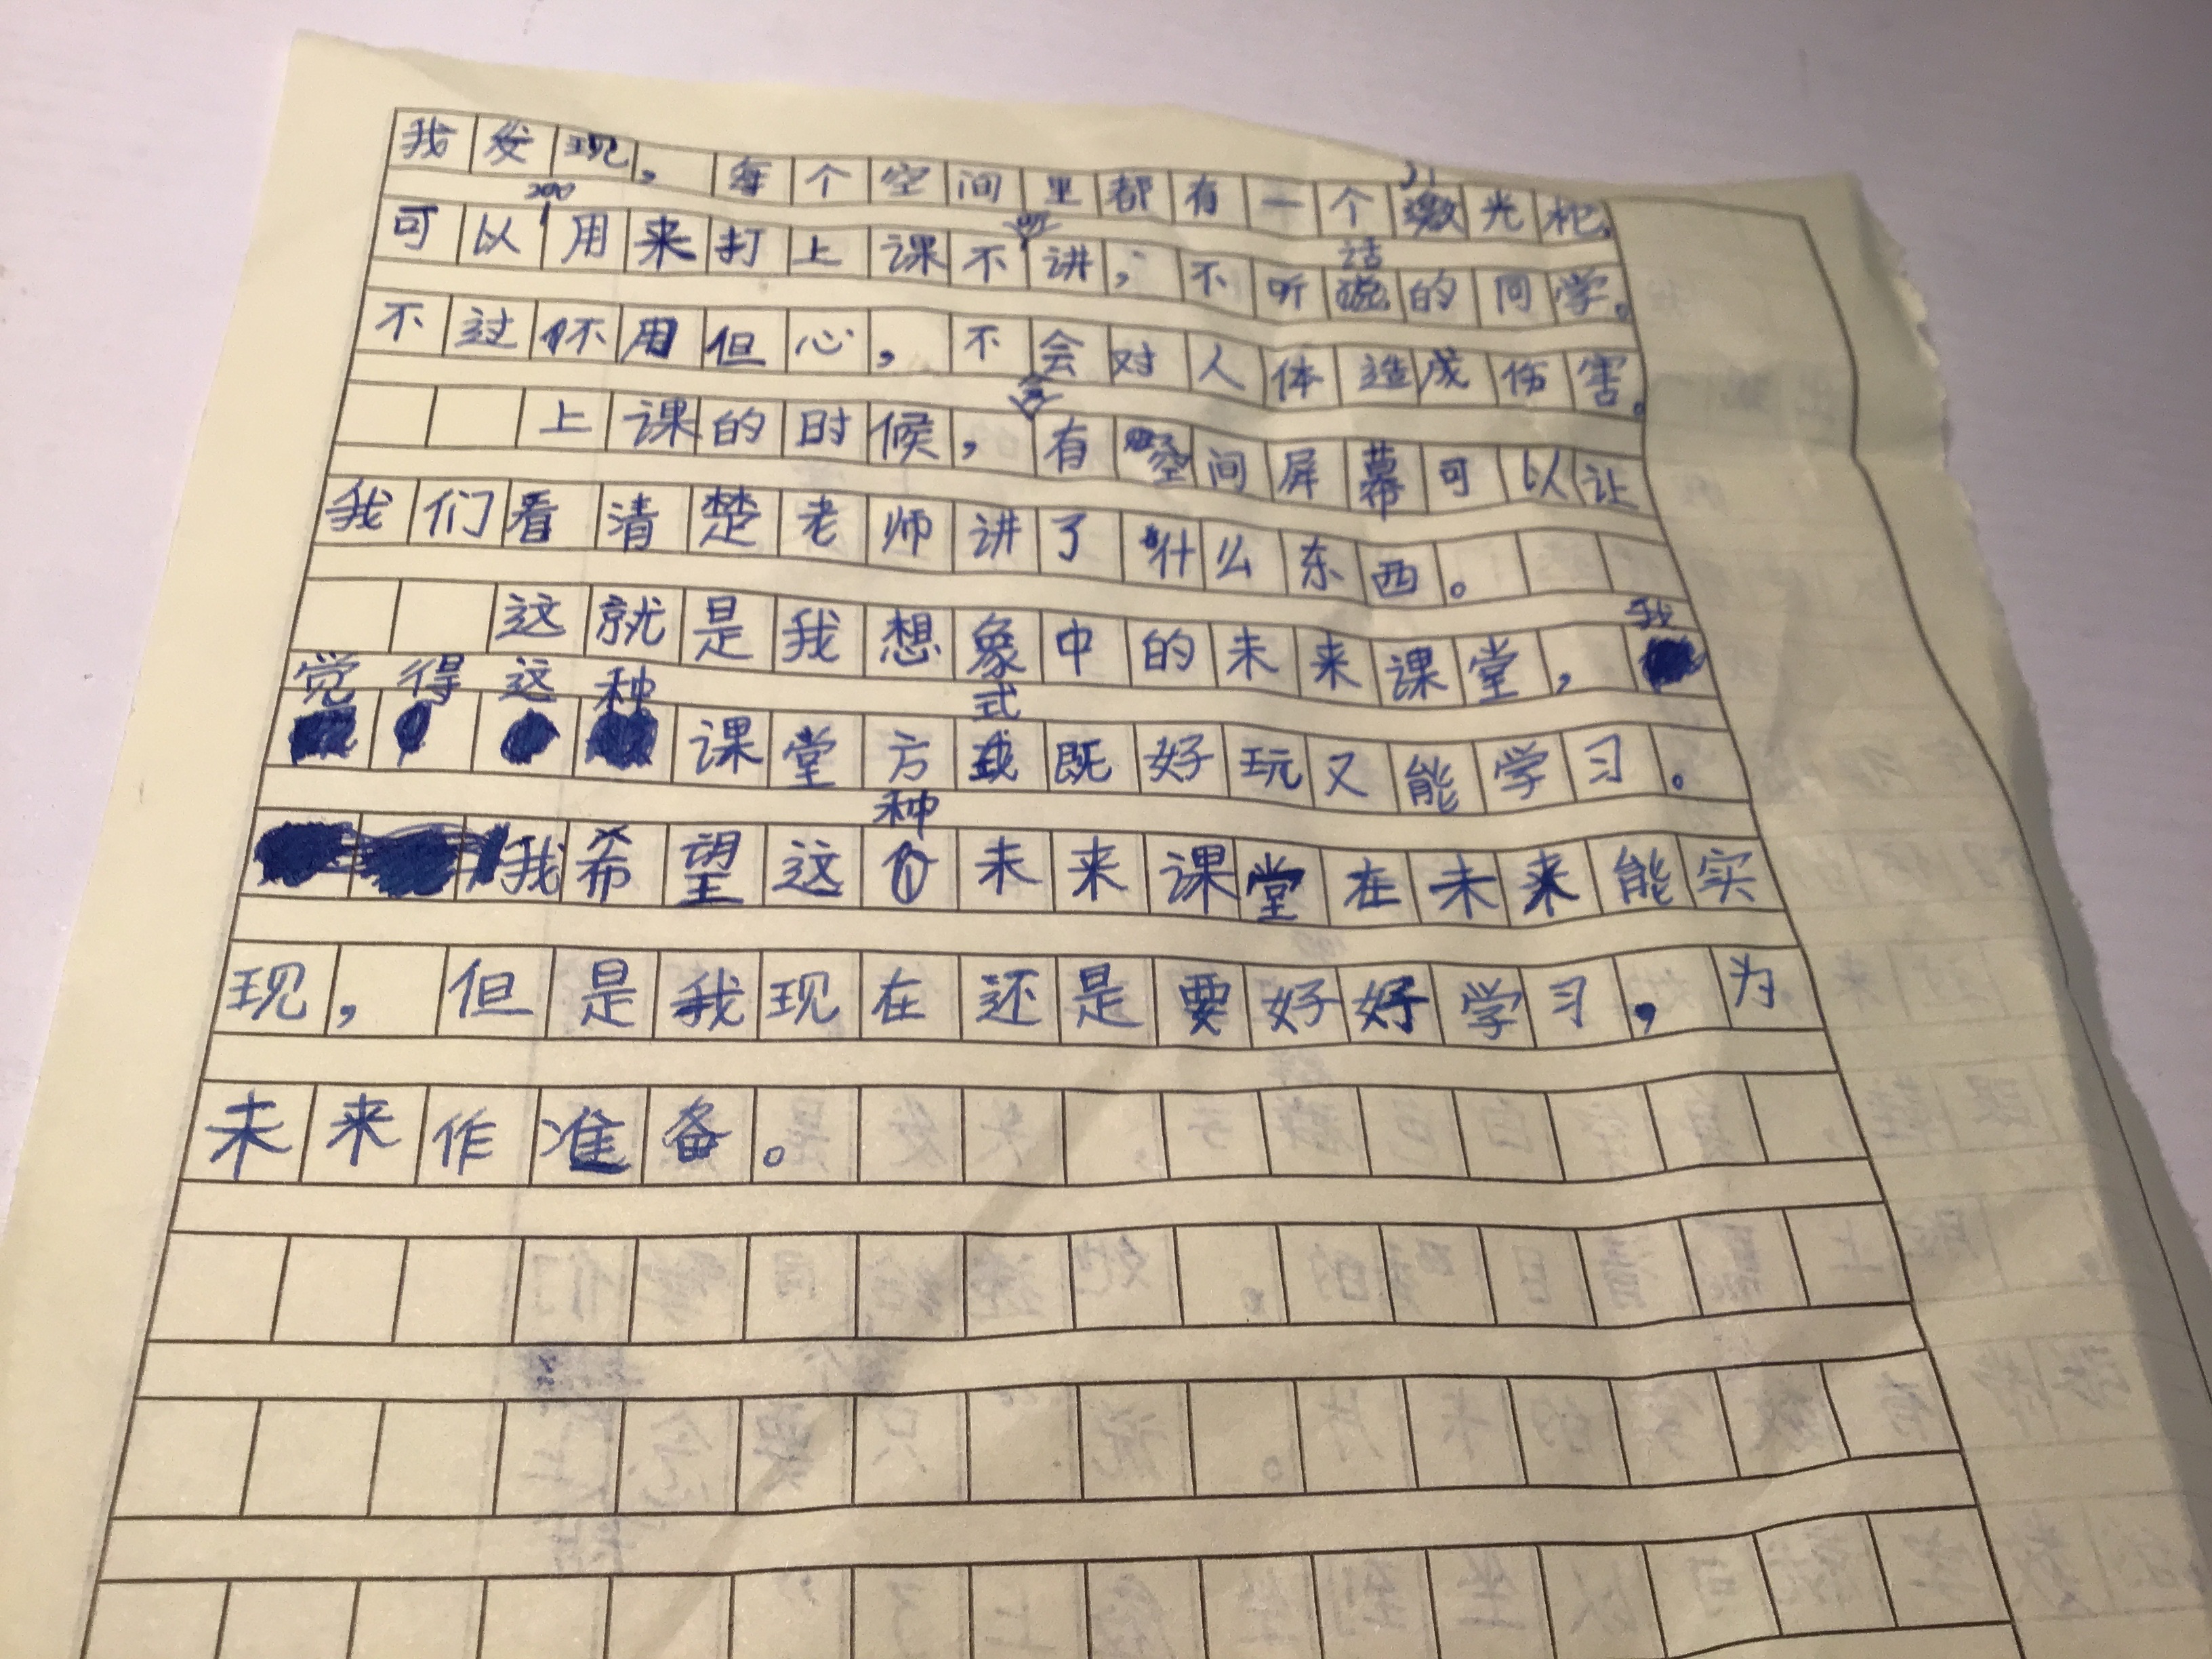 我发现，每个空间里都有一个激光枪，
可以用来打上课不听讲，不听话的同学。
不过不用但心，不会对人体造成伤害。
上课的时候，会有空间屏幕可以让
我们看清楚老师讲了什么东西。
这就是我想象中的未来课堂，我
觉得这种课堂方式既好玩又能学习。
我希望这种未来课堂在未来能实
现，但是我现在还是要好好学习，为
未来作准备。